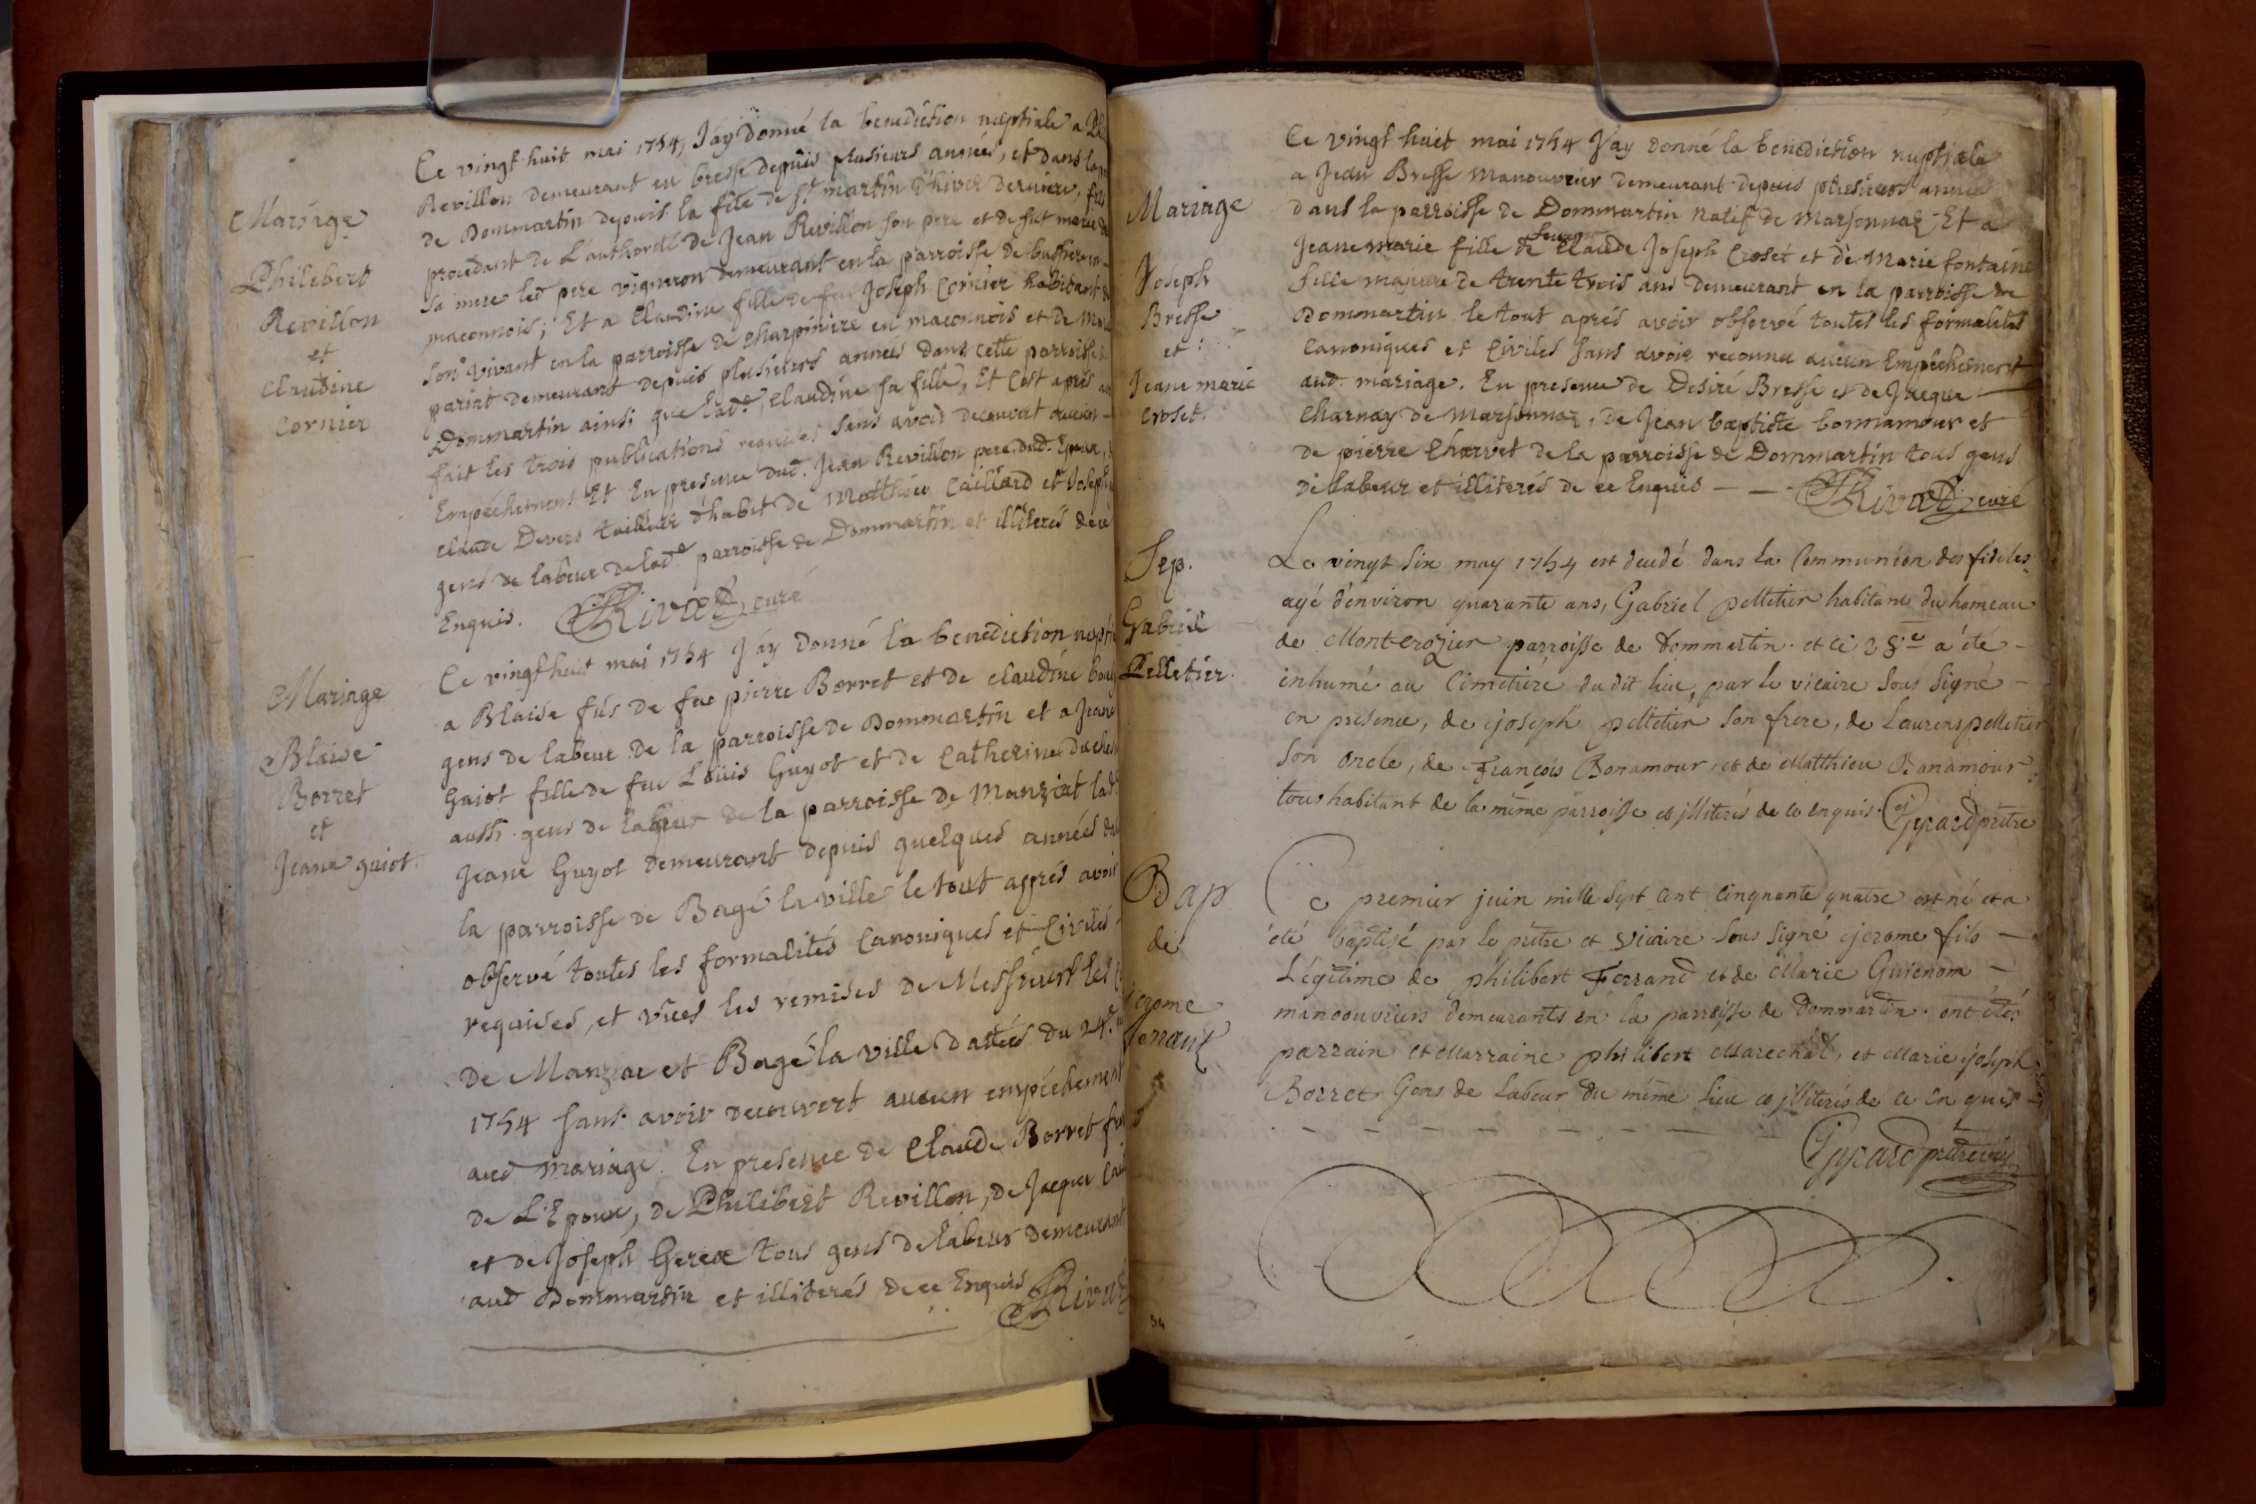 Mariage
Philebert
Revillon
et
Claudine
Cornier
Ce vingt huit mai 1754, J'ay donné la benediction nuptiale a
Revillon demeurant en bresse depuis plusieurs années, et dans la
de Dommartin depuis la fête de st martin d'hiver derniere, fils
procedant de L'authorité de Jean Revillon son pere et de fut marie
sa mere led pere vigneron demeurant en la parroisse de
maconnois; Et a Claudine fille de feu Joseph Cornier habitant
son vivant en la parroisse de Charpinire en maconnois et de
pariat demeurant depuis plusieurs années dans cette parroisse
Dommartin ainsi que lad.e Claudine sa fille, Et C'est aprés
fait les trois publications requises sans avoir decouvert aucun
Empêchement Et En presence dud. Jean Revillon pere dud. Epoux,
claude Devers tailleur d'habit de Matthieu Caillard et Joseph
gens de labeur de lad.e parroisse de Dommartin et illiterés de ce
Enquis. Rivat, curé
Mariage
Blaise
Borret
et
Jeane guiot.
Ce vingt huit mai 1754 J'áy donné la benediction
a Blaise fils de feu pierre Borret et de claudine
gens de labeur de la parroisse de Dommartin et a Jeane
Guiot fille de feu Loüis Guyot et de Catherine
aussi gens de labeur de la parroisse de Manziat lad.
Jeane Guyot demeurant depuis quelques années
la parroisse de Bagé la ville le tout aprés avoir
observé toutes les formalités Canoniques et Civiles
requises, et vües les remises de Messieurs les
de Manziat et Bagé la ville dattées du 24.e
1754 sans avoir decouvert aucun empéchement
aud mariage. En presence de Claude Borret
de L'Epoux, de Philibert Revillon, de Jacque
et de Joseph Gerea tous gens de labeur demeurant
aud Dommartin et illiterés de ce Enquis Rivat
Mariage
Joseph
Bresse
et
Jeane marie
Croset.
Ce vingt huit mai 1754 J'ay donné la benediction nuptiale
a Jean Bresse Manouvrier demeurant depuis plusieurs année
dans la parroisse de Dommartin natif de Marsonnaz, Et a
Jeane marie fille de feu Claude Joseph Croset et de Marie fontaine
fille majeure de trente trois ans demeurant en la parroisse de
Dommartin le tout aprés avoir observé toutes les formalités
Canoniques et Civiles sans avoir reconnu aucun Empêchement
aud. mariage. En presence de Desiré Bresse et de Jacque
Charnay de Marsonnaz, de Jean baptiste bonnamour et
de pierre Charvet de la parroisse de Dommartin tous gens
de labeur et illiterés de ce Enquis Rivat, curé
Sep.
Gabriel
Pelletier.
Le vingt six may 1754 est decedé dans la Communion des fideles,
agé d'environ quarante ans, Gabriel pelletier habitant du hameau
de Montcrozier parroisse de Dommartin. et ce 28.e a été
inhumé au Cimetiére du dit lieu, par le vicaire sous signé
en presence, de joseph pelletier son frere, de Laurens pelletier
son oncle, de françois Bonamour, et de Matthieu Bonamour,
tous habitant de la même parroisse et illiterés de ce enquis. Gerard prêtre
Bap
de
jerome
ferrand
Ce premier juin mille sept cent cinquante quatre est né et a
été baptisé par le prêtre et vicaire sous signé jerome fils
Légitime de philibert Ferrand et de Marie Guienom
manoouvriers demeurants en la parroisse de Dommartin. ont étés
parrain et Marraine philibert Marechal, et Marie joseph
Borret Gens de Labeur du même lieu et illiterés de ce enquis
Gerard prêtre vic
54